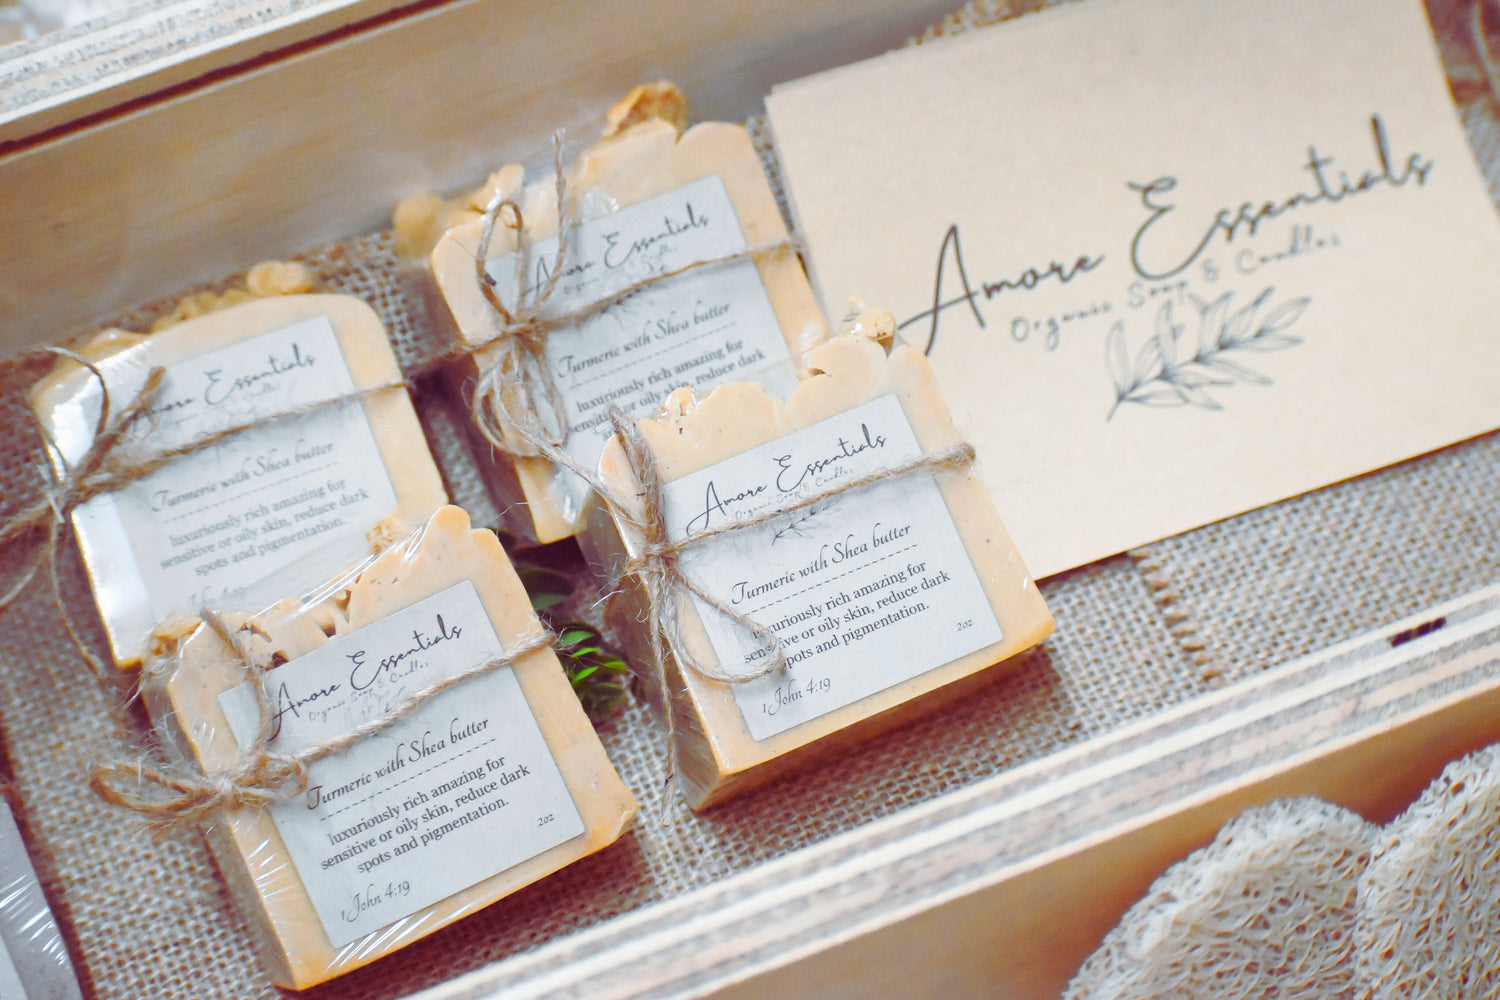 Amore Essentials
Organic Soap & Candles
Amore Essentials
Organic Soap & Candles
Turmeric with Shea butter
luxuriously rich amazing for
sensitive or oily skin, reduce dark
Amore Essentials
Turmeric with Shea butter
luxuriously rich amazing for
sensitive or oily skin, reduce dark
spots and pigmentation.
Amore Essentials
Organic Soap & Candles
Turmeric with Shea butter
luxuriously rich amazing for
sensitive or oily skin, reduce dark
spots and pigmentation.
2oz
1 John 4:19
Amore Essentials
Organic Soap & Candles
Turmeric with Shea butter
luxuriously rich amazing for
sensitive or oily skin, reduce dark
spots and pigmentation.
2oz
1 John 4:19